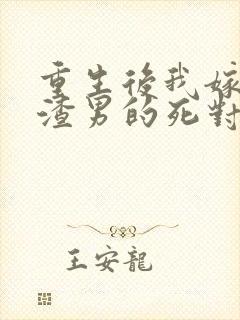 重生後我嫁
渣男的死對
王安龍